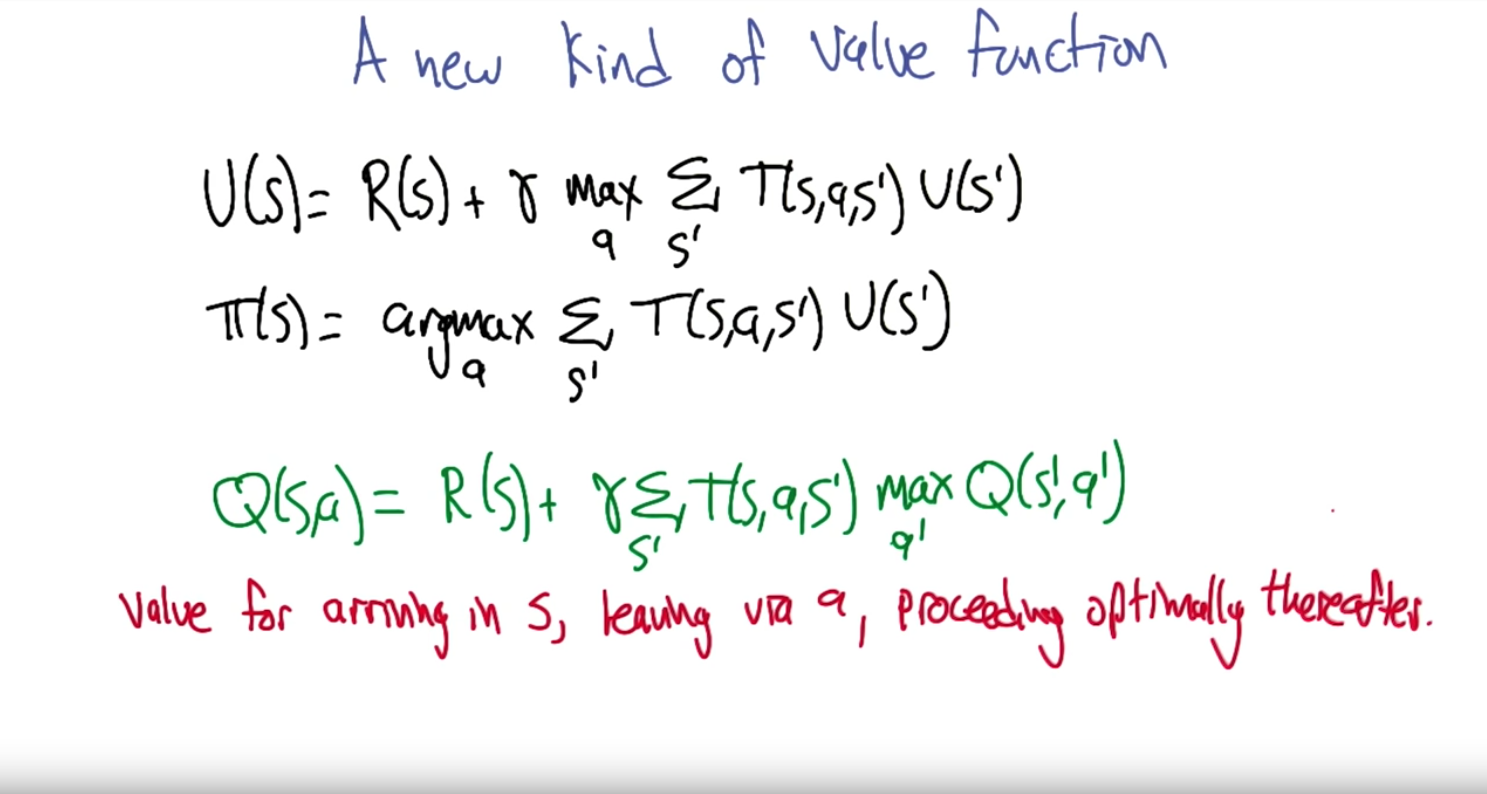 A new kind of value function
U(s)= R(s) + γ max Σ T(s,a,s') U(s')
a s'
π(s)= argmax Σ T(s,a,s') U(s')
a s'
Q(s,a)= R(s) + γ Σ T(s,a,s') max Q(s',a')
s' a'
value for arriving in s, leaving via a, proceeding optimally thereafter.